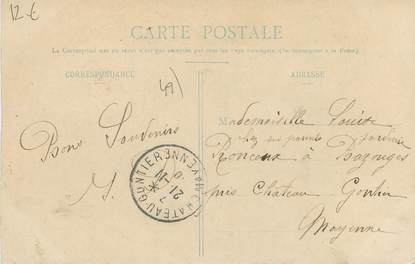 12.€
CARTE POSTALE
La Correspondance au recto n'est pas acceptée par tous les pays étrangers (Se renseigner à la Poste).
CORRESPONDANCE
ADRESSE
49)
Bons Souvenirs
Mademoiselle Louise
chez ses parents jardinier
à Bazouges
près Château Gontier
Mayenne
CHATEAU-GONTIER
MAYENNE
21